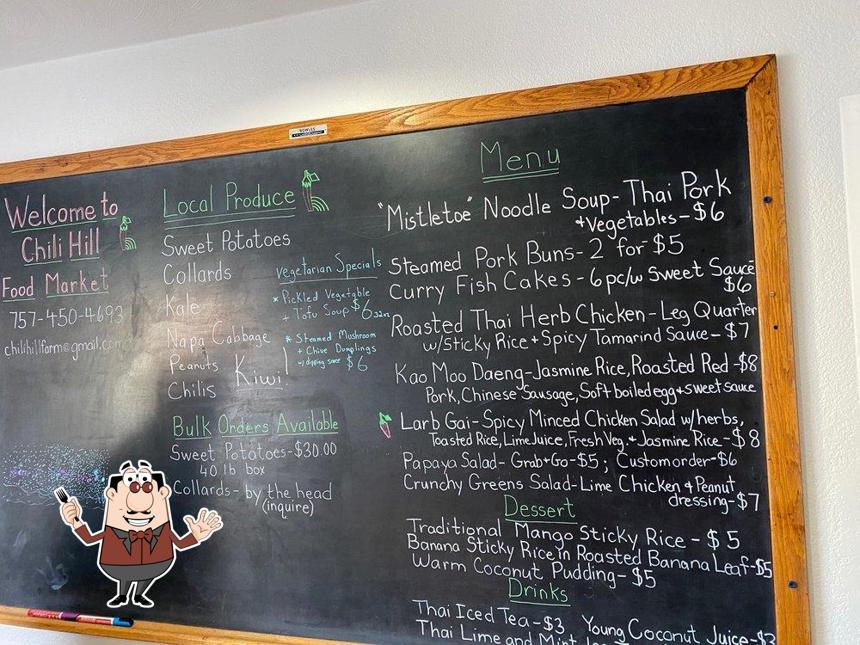 Welcome to
Chili Hill
Food Market
757-450-4693
chilihillfarm@gmail.com
Local Produce
Sweet Potatoes
Collards
Kale
Napa Cabbage
Peanuts
Kiwi!
Chilis
Vegetarian Specials
* Pickled Vegetable
+ Tofu Soup $6 32oz
* Steamed Mushroom
+ Chive Dumplings
w/ dipping sauce $6
Bulk Orders Available
Sweet Pototoes-$30.00
40 lb box
Collards- by the head
(inquire)
Menu
"Mistletoe" Noodle Soup- Thai Pork
+Vegetables-$6
Steamed Pork Buns- 2 for $5
Curry Fish Cakes- 6pc/w Sweet Sauce
$6
Roasted Thai Herb Chicken-Leg Quarter
w/Sticky Rice + Spicy Tamarind Sauce- $7
Kao Moo Daeng-Jasmine Rice, Roasted Red -$8
Pork, Chinese Sausage, Soft boiled egg+sweet sauce
Larb Gai-Spicy Minced Chicken Salad w/herbs,
Toasted Rice, Lime Juice, Fresh Veg.+ Jasmine Rice-$8
Papaya Salad- Grab+Go-$5; Custom order-$6
Crunchy Greens Salad-Lime Chicken + Peanut
dressing-$7
Dessert
Traditional Mango Sticky Rice - $5
Banana Sticky Rice in Roasted Banana Leaf-$5
Warm Coconut Pudding- $5
Drinks
Thai Iced Tea-$3 Young Coconut Juice-$3
Thai Lime and Mint